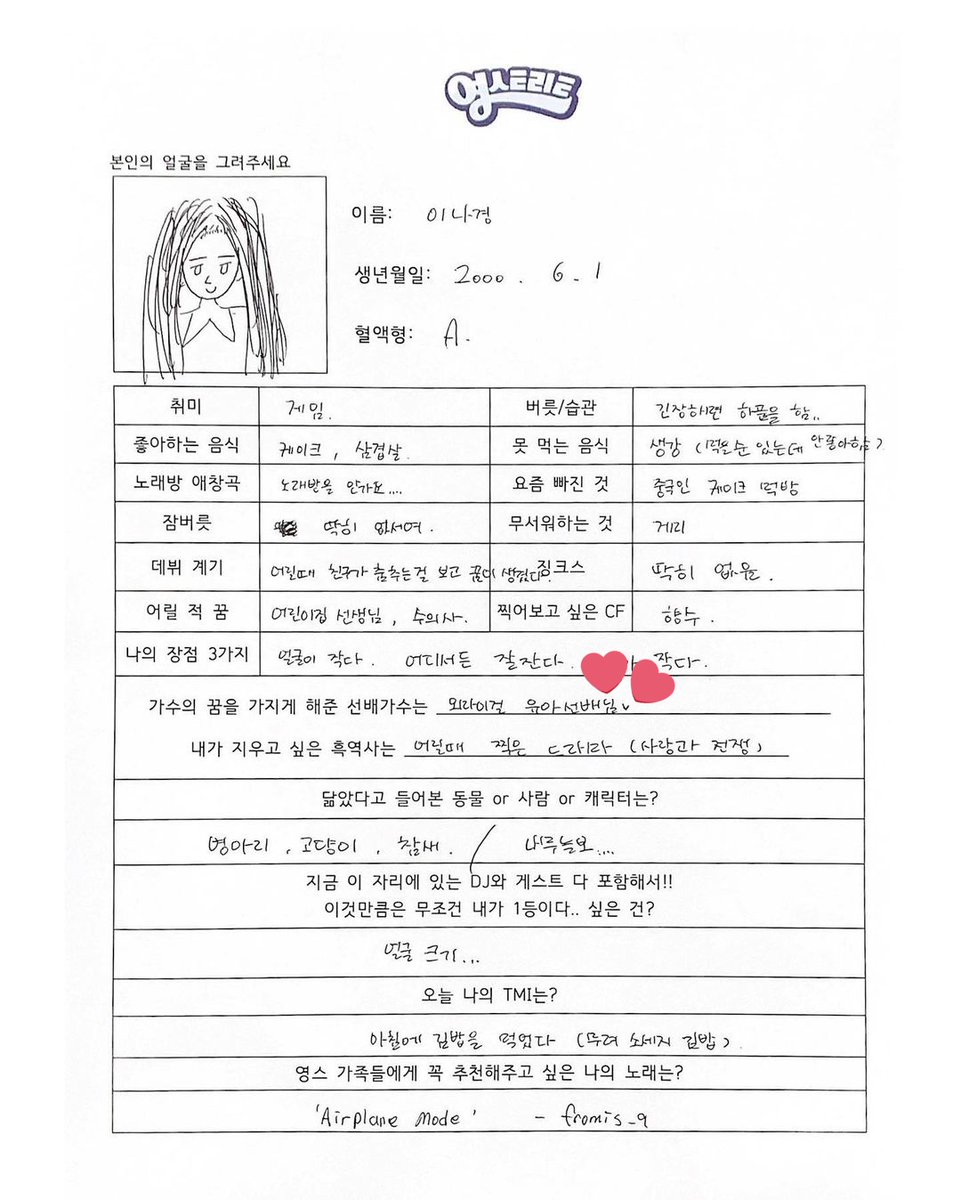 영스트리트
본인의 얼굴을 그려주세요
이름: 이나경
생년월일: 2000. 6. 1
혈액형: A.
취미 게임. 버릇/습관 긴장하면 하품을 함..
좋아하는 음식 케이크, 삼겹살. 못 먹는 음식 생강 (먹을순 있는데 안좋아함).
노래방 애창곡 노래방을 안가요.... 요즘 빠진 것 중국인 케이크 먹방
잠버릇 딱히 없서여. 무서워하는 것
데뷔 계기 어릴때 친구가 춤추는걸 보고 꿈이 생겼다. 징크스 딱히 없음.
어릴 적 꿈 어린이집 선생님, 수의사. 찍어보고 싶은 CF 향수.
나의 장점 3가지 얼굴이 작다. 어디서든 잘잔다. 가 작다.
가수의 꿈을 가지게 해준 선배가수는 오마이걸 유아선배님
내가 지우고 싶은 흑역사는 어릴때 찍은 드라마 (사랑과 전쟁)
닮았다고 들어본 동물 or 사람 or 캐릭터는?
병아리, 고양이, 참새. / 나무늘보....
지금 이 자리에 있는 DJ와 게스트 다 포함해서!!
이것만큼은 무조건 내가 1등이다.. 싶은 건?
얼굴 크기...
오늘 나의 TMI는?
아침에 김밥을 먹었다 (무려 소세지 김밥).
영스 가족들에게 꼭 추천해주고 싶은 나의 노래는?
'Airplane Mode' - fromis_9